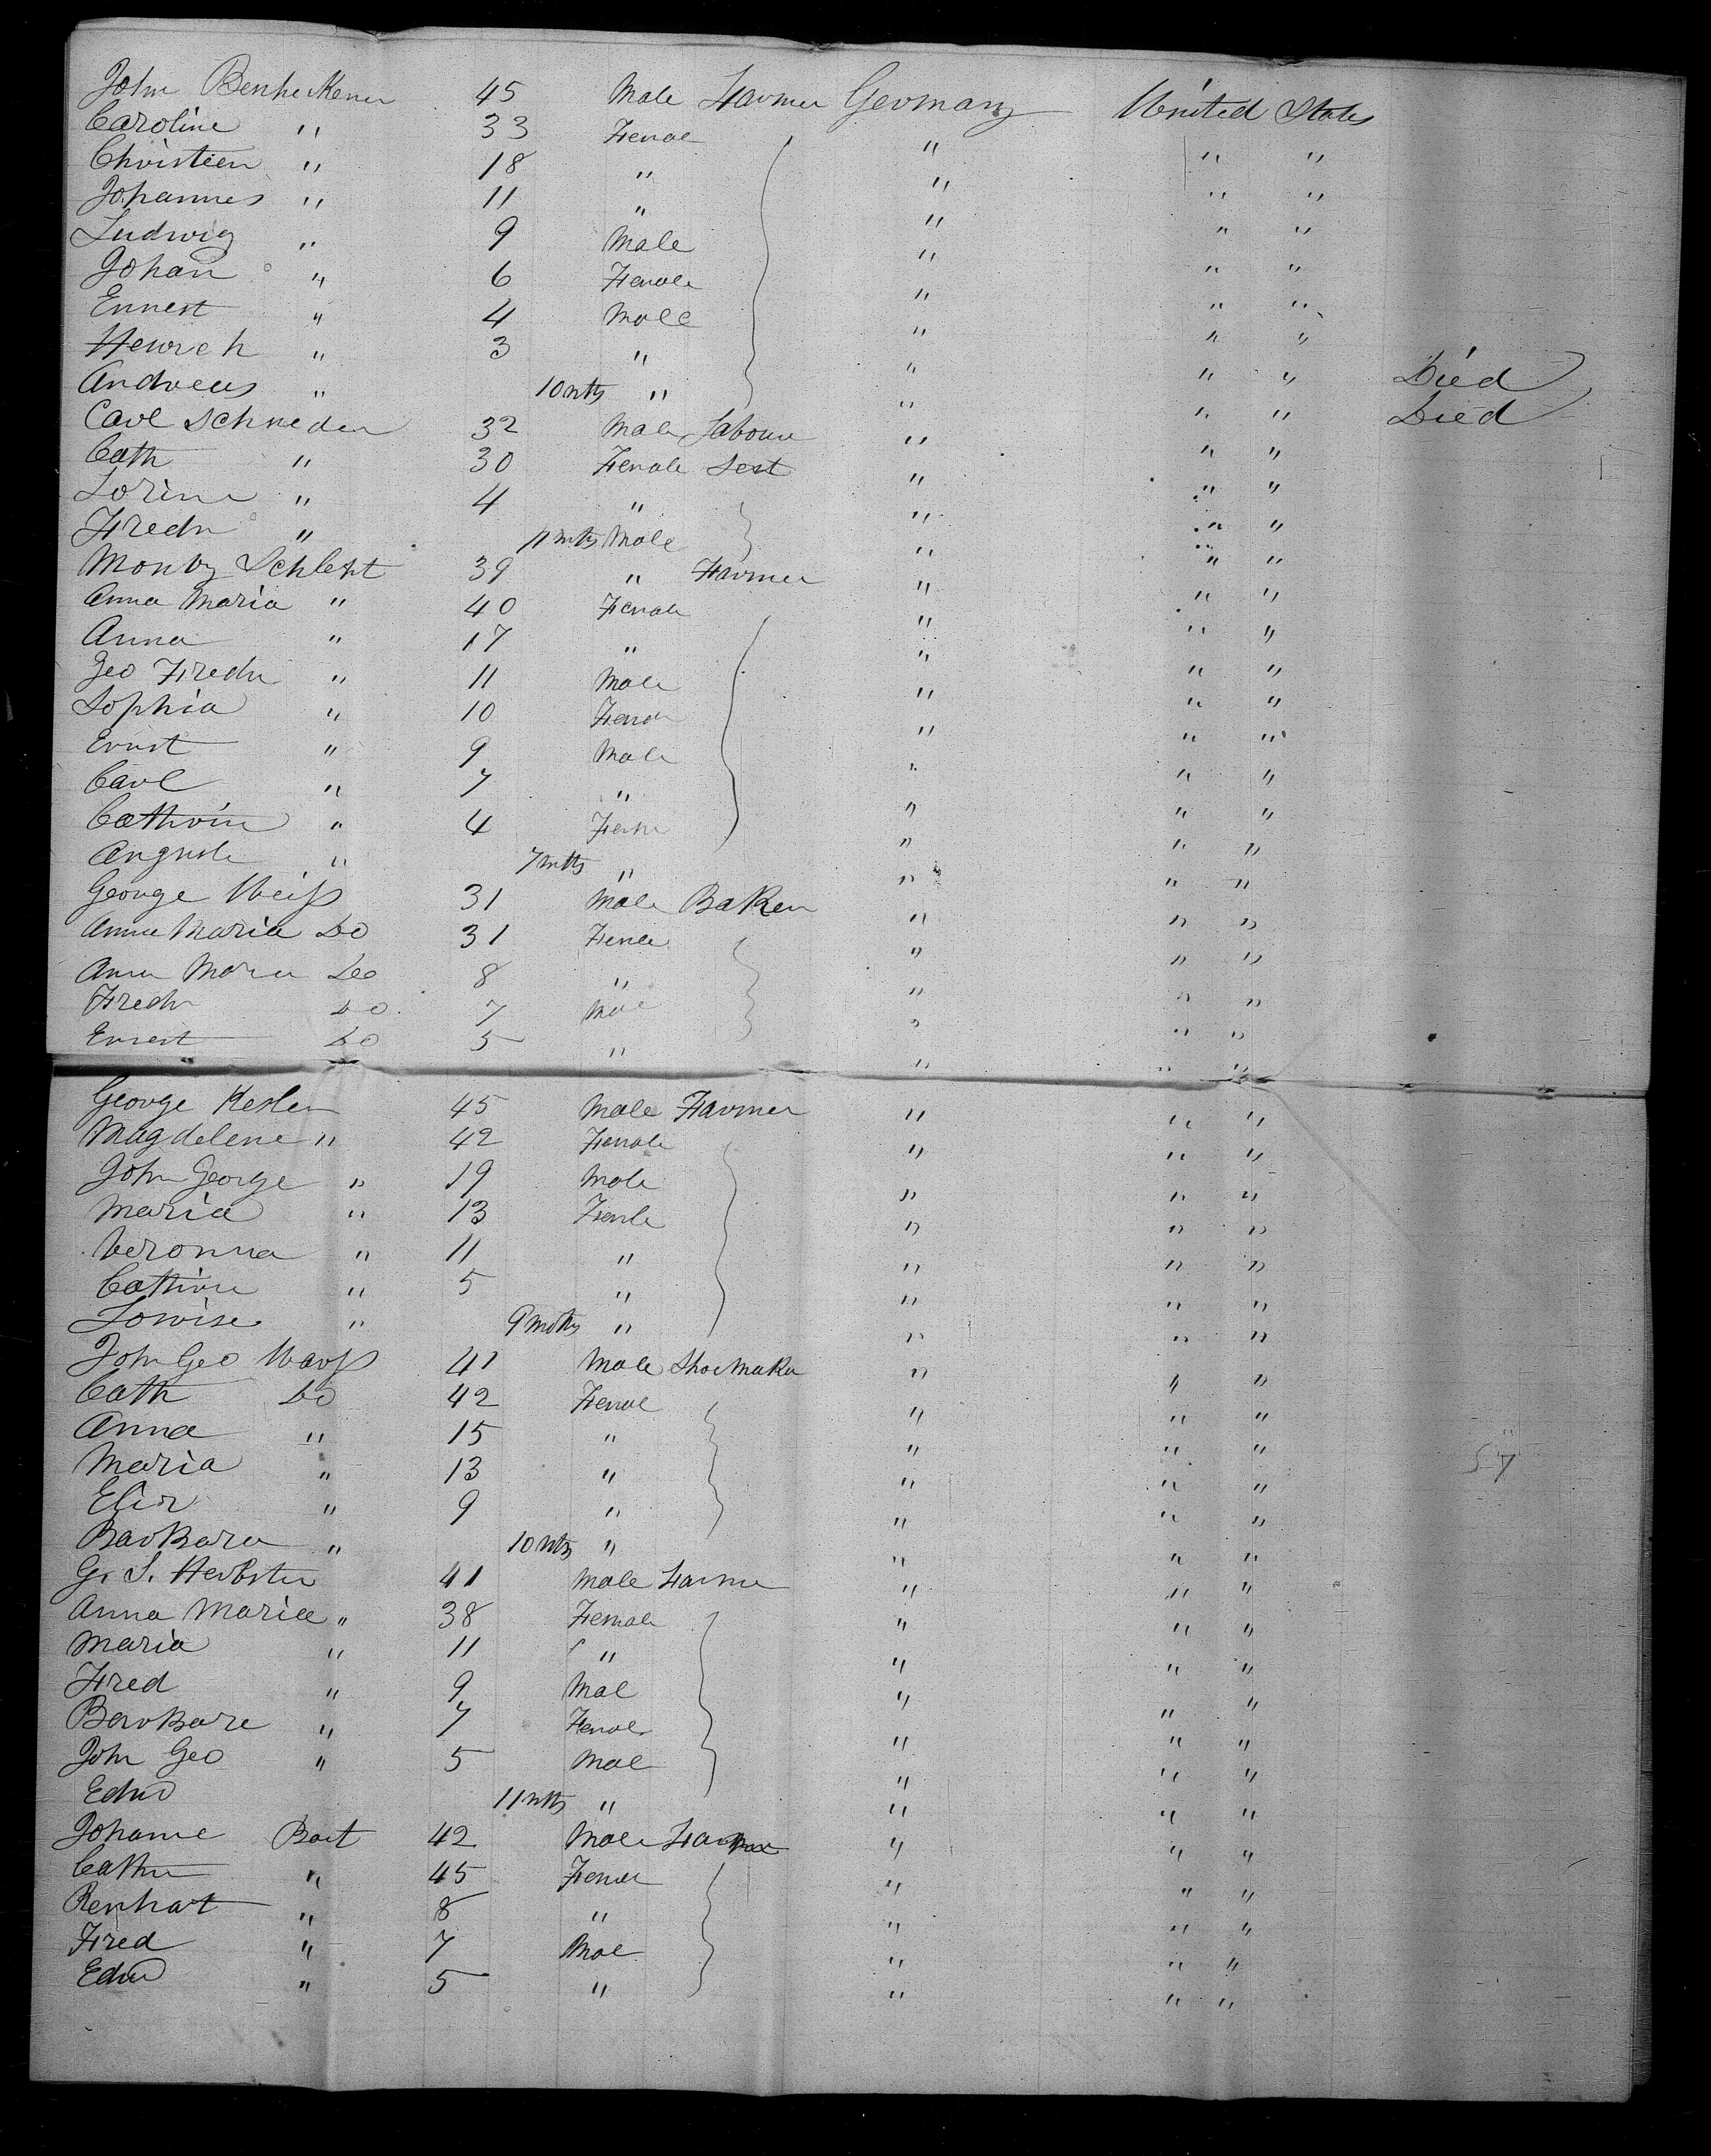 John Benheckener 45 Male Farmer Germany United States
Caroline " 33 Femal " " "
Christeen " 18 " " " "
Johannes " 11 " " " "
Ludwig " 9 Male " " "
Johan " 6 Female " " "
Ennest " 4 Male " " "
Henreh " 3 " " " " Died
Andreas " 10 mths " " " " Died
Carl Schneder 32 Male Labour " " "
Cath " 30 Female " " "
Lorine " 4 " " " "
Fredr " 11 mths Male " " "
Schleht 39 " Farmer " " "
Anna Maria " 40 Female " " "
Anna " 17 " " " "
Geo Fredr " 11 Male " " "
Sophia " 10 Femal " " "
Ernst " 9 Male " " "
Carl " 7 " " " "
Cathrin " 4 Fem " " "
August " 7 mths " " " "
George Weiss 31 Male Baker " " "
Anna Maria Do 31 Femle " " "
Anna Maria Do 8 " " " "
Fredr Do 7 Mal " " "
Ernest Do 5 " " " "
George Kesler 45 Male Farmer " " "
Magdelene " 42 Female " " "
John George " 19 Male " " "
Maria " 13 Femle " " "
Veronna " 11 " " " "
Cathrin " 5 " " " "
Lowise " 9 mths " " " "
John Geo 41 Male Shoemaker " " "
Cath Do 42 Femal " " "
Anna " 15 " " " "
Maria " 13 " " " " 57
" 9 " " " "
Barbara " 10 mths " " " "
Herbster 41 Male Farmer " " "
Anna Maria " 38 Female " " "
Maria " 11 " " " "
Fred " 9 Mal " " "
Barbare " 7 Femal " " "
John Geo " 5 Mal " " "
Edwd 11 mths " " " "
Johanne 42 Male Farmer " " "
Cathn " 45 Femal " " "
Renhart " 8 " " " "
Fred " 7 Mal " " "
Edwd " 5 " " " "